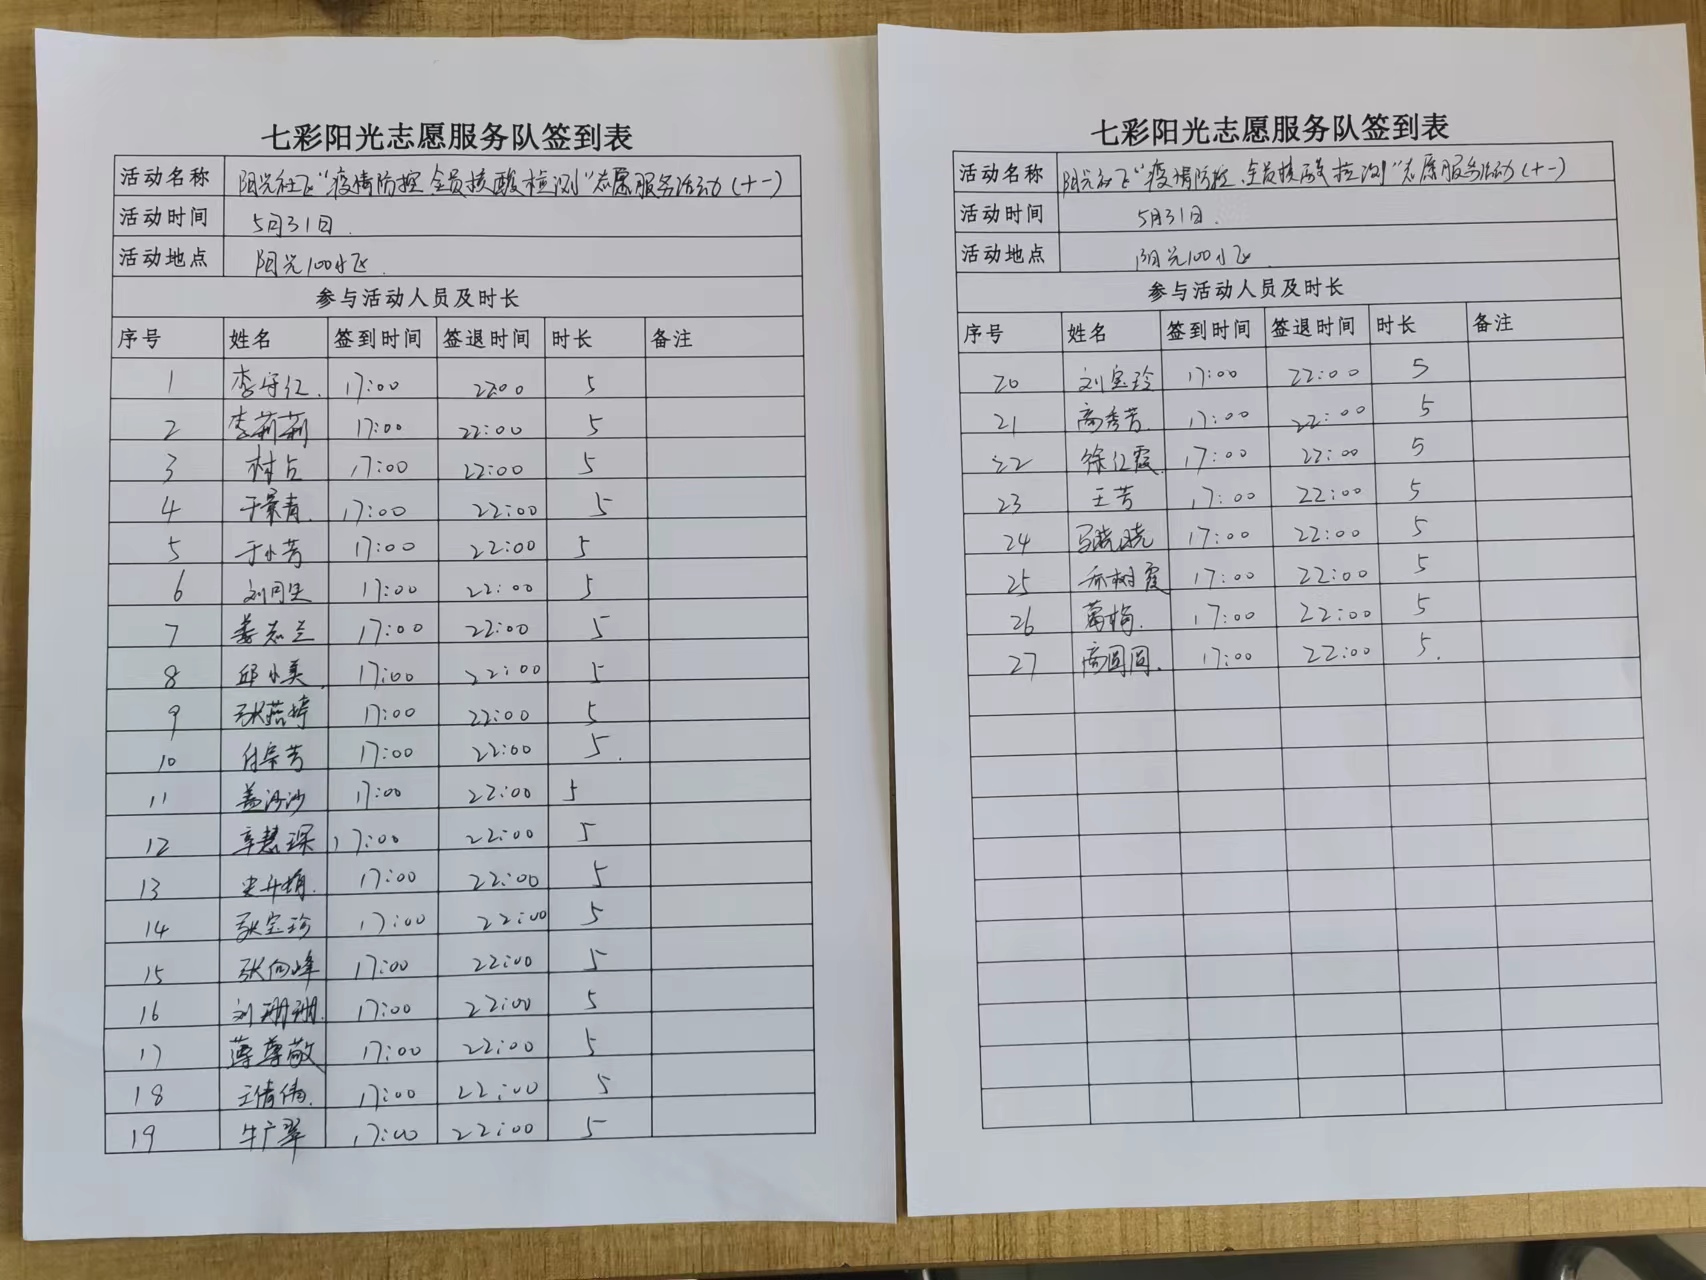 七彩阳光志愿服务队签到表
活动名称 阳光社区“疫情防控 全员核酸检测”志愿服务活动(十一)
活动时间 5月31日.
活动地点 阳光100小区.
参与活动人员及时长
序号 姓名 签到时间 签退时间 时长 备注
1 李守红. 17:00 22:00 5
2 李莉莉 17:00 22:00 5
3 17:00 22:00 5
4 于景青. 17:00 22:00 5
5 于小芳 17:00 22:00 5
6 17:00 22:00 5
7 姜志兰 17:00 22:00 5
8 邱小美 17:00 22:00 5
9 张茹婷 17:00 22:00 5
10 17:00 22:00 5.
11 17:00 22:00 5
12 辛慧琛 17:00 22:00 5
13 17:00 22:00 5
14 张宝珍 17:00 22:00 5
15 张向峰 17:00 22:00 5
16 刘珊珊. 17:00 22:00 5
17 薄尊敬 17:00 22:00 5
18 王倩倩. 17:00 22:00 5
19 牛广翠 17:00 22:00 5
七彩阳光志愿服务队签到表
活动名称 阳光社区“疫情防控、全员核酸检测”志愿服务活动(十一)
活动时间 5月31日.
活动地点 阳光100小区.
参与活动人员及时长
序号 姓名 签到时间 签退时间 时长 备注
20 刘宝玲 17:00 22:00 5
21 高秀芳. 17:00 22:00 5
22 徐红霞 17:00 22:00 5
23 王芳 17:00 22:00 5
24 17:00 22:00 5
25 乔树霞 17:00 22:00 5
26 葛梅. 17:00 22:00 5
27 商圆圆. 17:00 22:00 5.